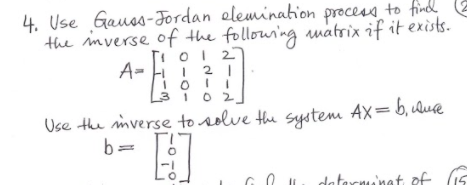 4. Use Gauss-Jordan elemination process to find (2
the inverse of the following matrix if it exists.
A= [1 0 1 2
-1 1 2 1
1 0 1 1
3 1 0 2]
Use the inverse to solve the system AX=b, where
b= [1
0
-1
0]
determinat of (15